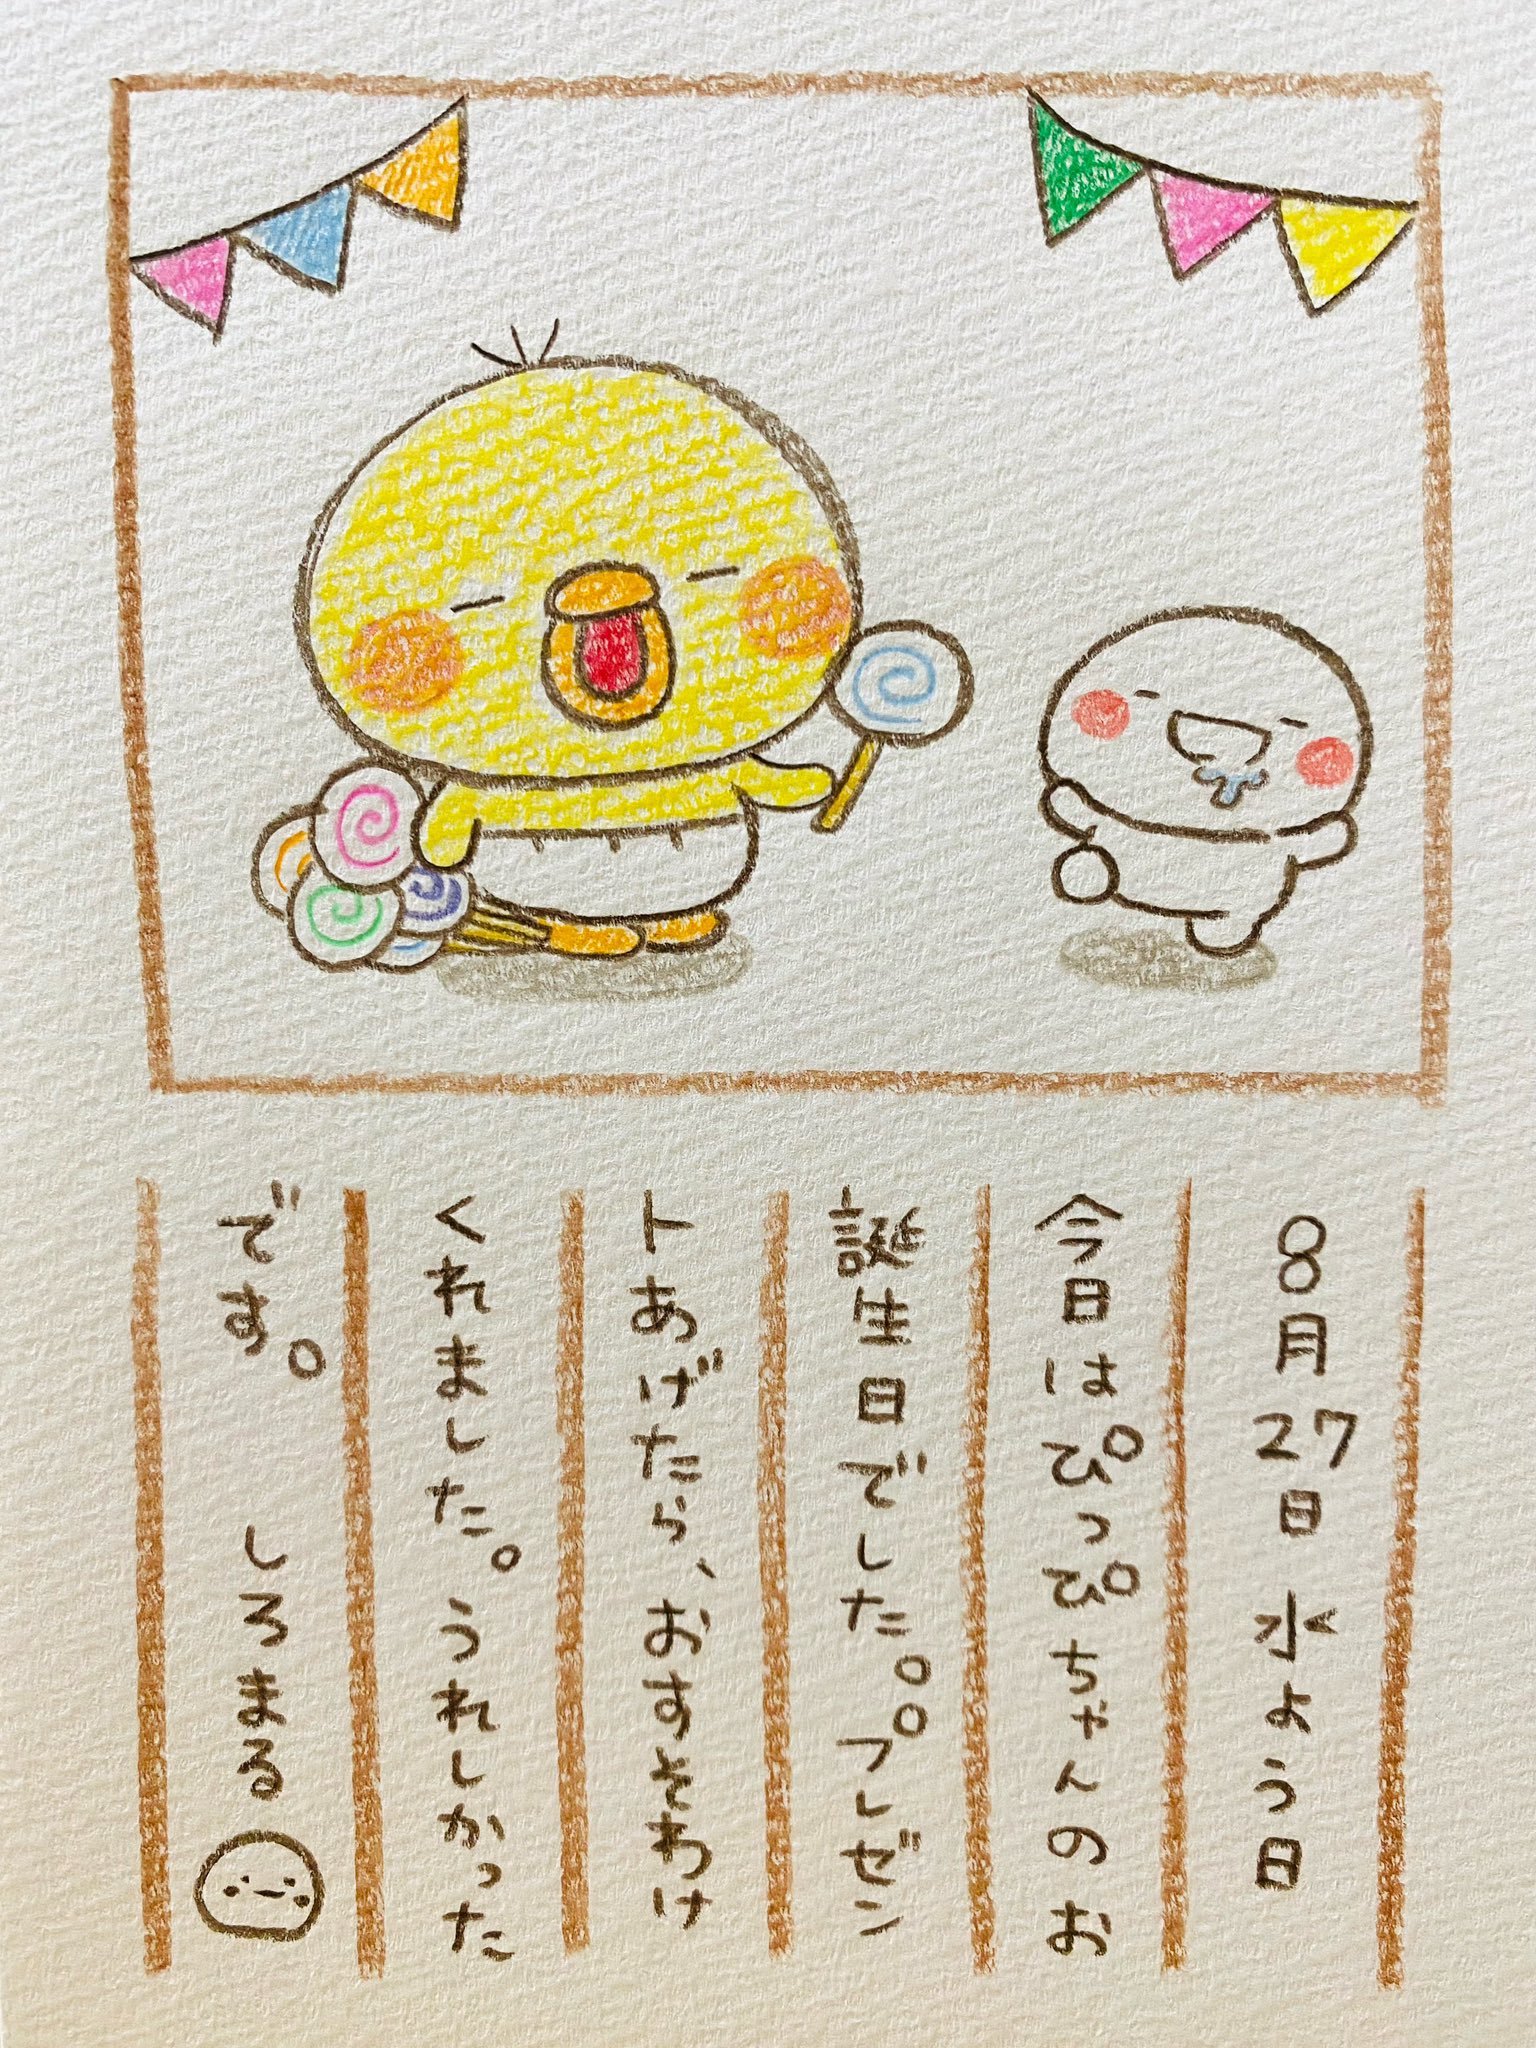 8月27日水よう日
今日はぴっぴちゃんのお
誕生日でした。プレゼン
トあげたら、おすそわけ
くれました。うれしかった
です。 しろまる